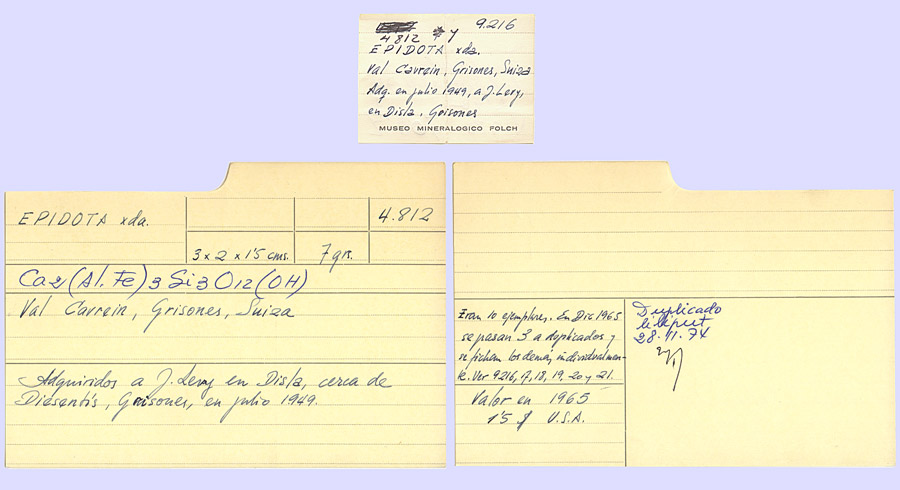 9.216
4812 * y
EPIDOTA xda.
Val Cavrein, Grisones, Suiza
Adq. en julio 1949, a J. Levy,
en Disla, Grisones
MUSEO MINERALOGICO FOLCH
EPIDOTA xda.
4.812
3 x 2 x 1'5 cms.
7 grs.
Ca2(Al.Fe)3Si3O12(OH)
Val Cavrein, Grisones, Suiza
Adquiridos a J. Levy en Disla, cerca de
Disentis, Grisones, en julio 1949.
Eran 10 ejemplares. En Dic 1965
se pasan 3 a duplicados y
se fichen los demás individualmen-
te. Ver 9216, 17, 18, 19, 20 y 21.
Valor en 1965
1'5 $ U.S.A.
Duplicado
liliput
28.11.74